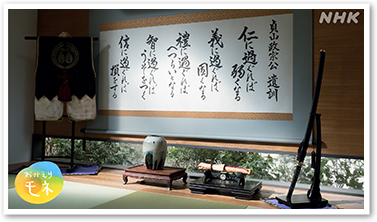 NHK
貞山政宗公 遺訓
仁に過ぐれば
弱くなる
義に過ぐれば
固くなる
禮に過ぐれば
へつらいとなる
智に過ぐれば
うそをつく
信に過ぐれば
損をする
おかえり
モネ